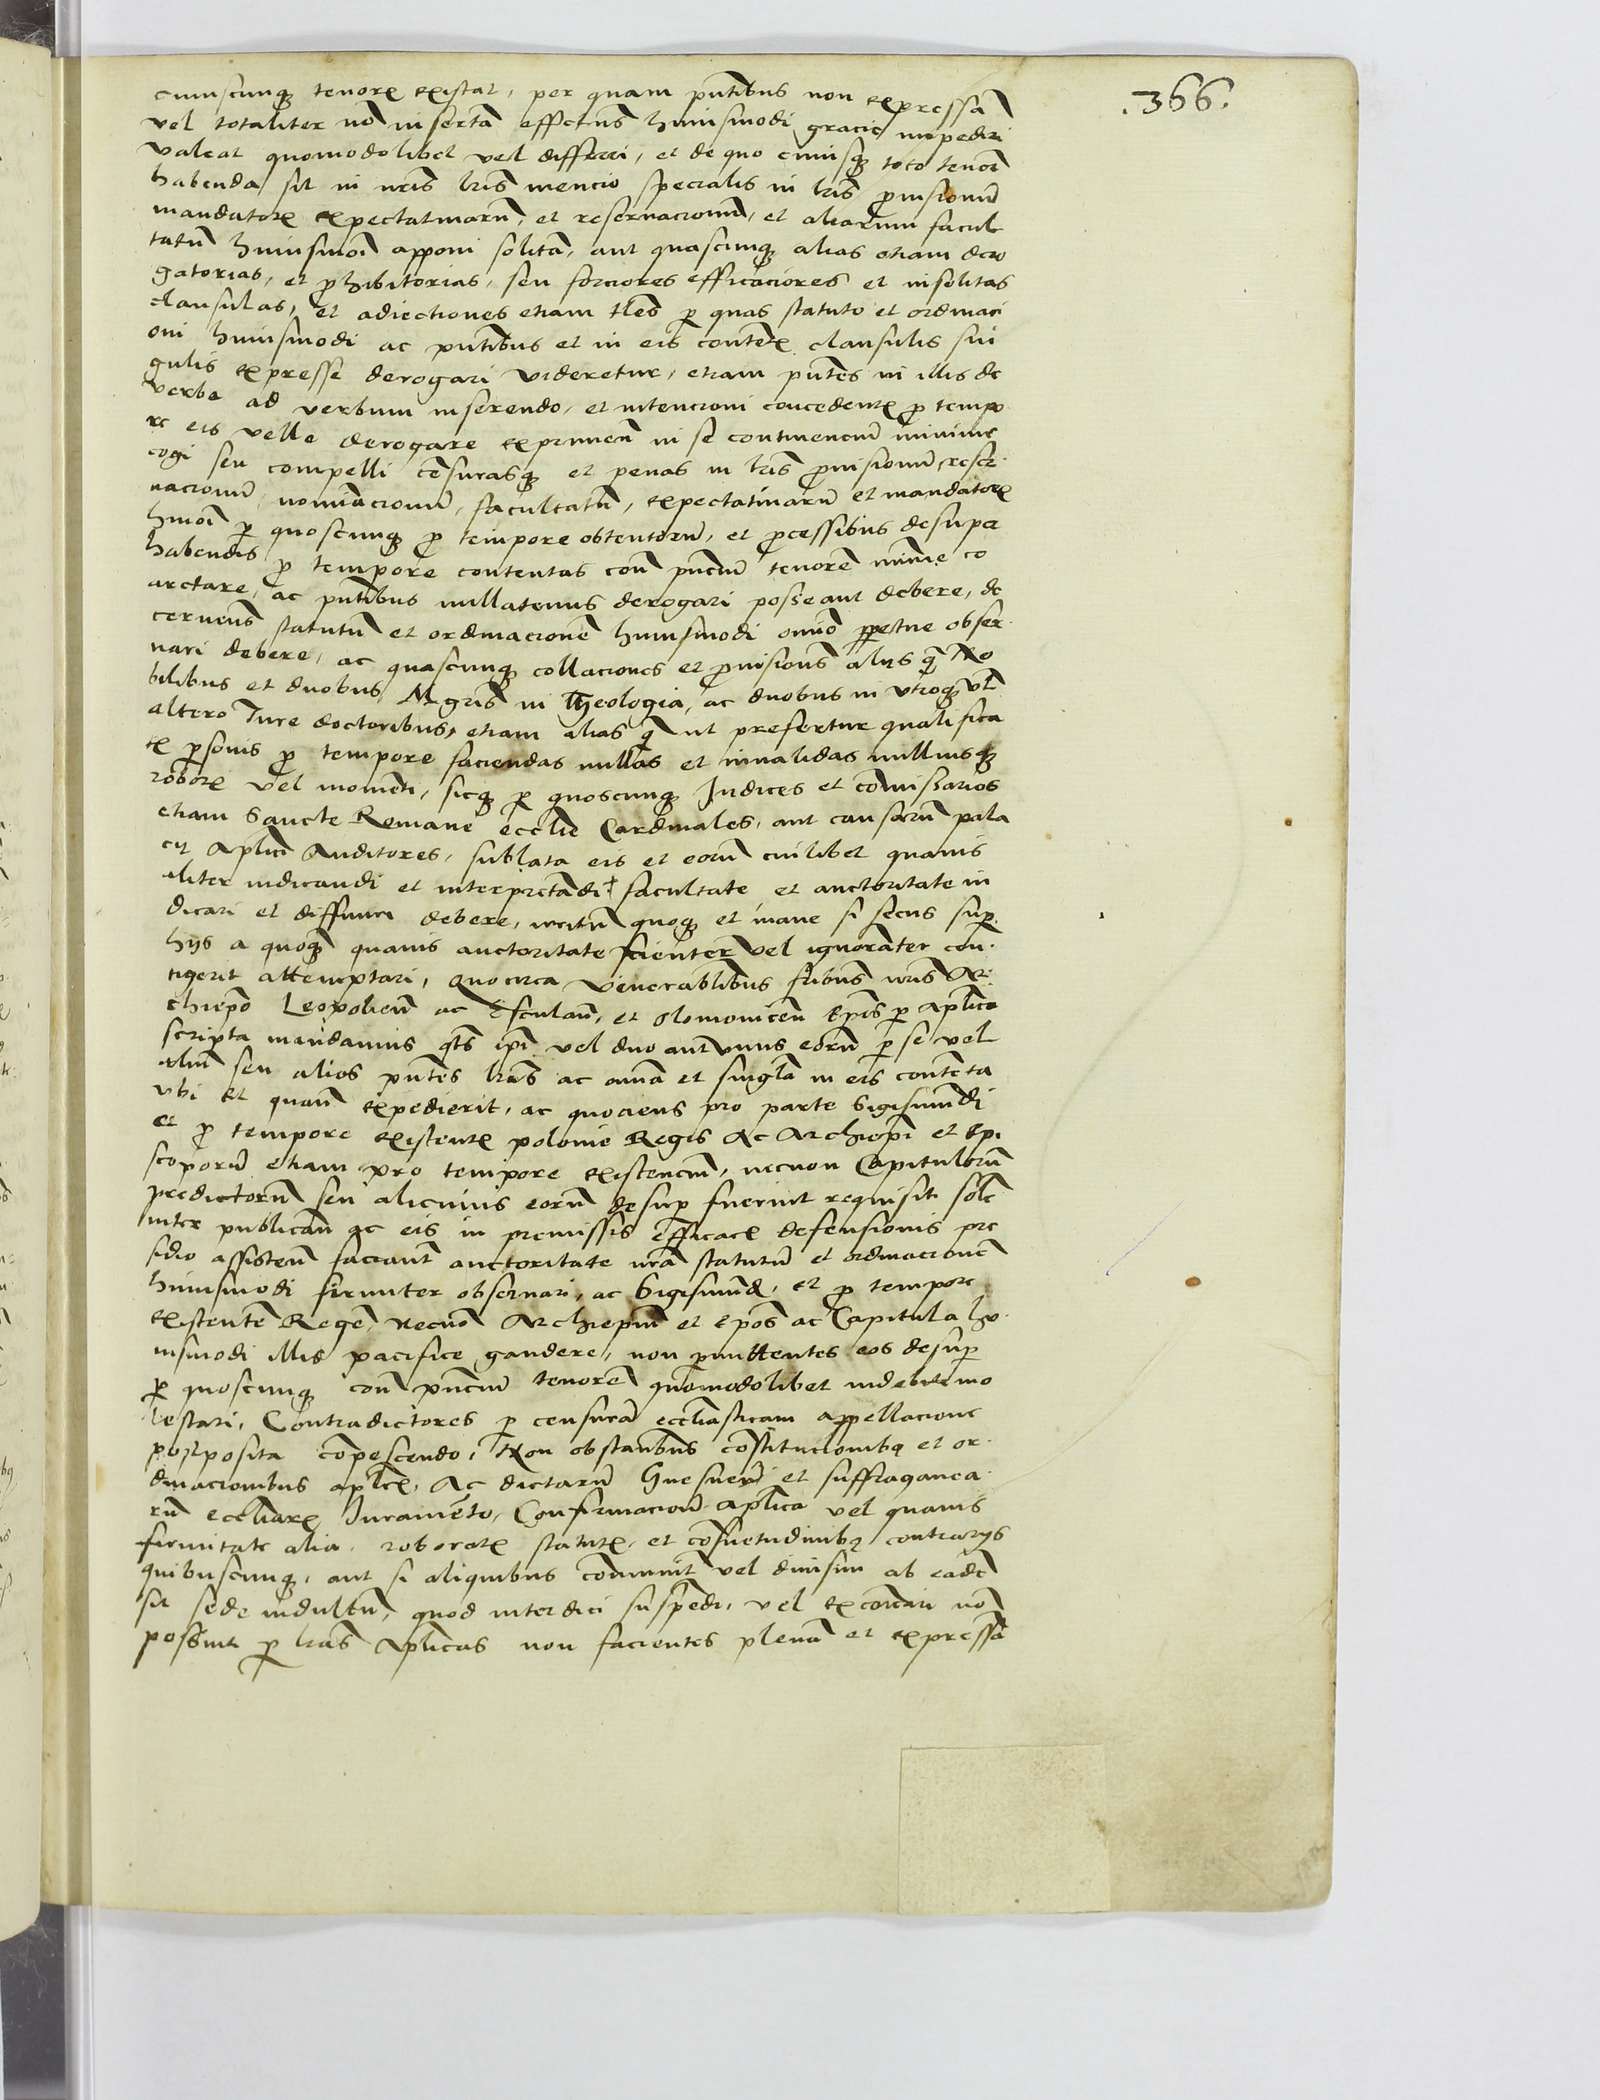 .366.
cuiuscunq tenore existat, per quam pntibus non expressa
vel totaliter no inserta effectus huiusmodi gracie impediri
valeat quomodolibet vel differri, et de quo cuiusq toto tenori
habenda sit in nris lris mencio specialis in lris prouisionu
mandator expectatiuaru, et reseruacionu, et aliarum facul
tatu huiusmodi apponi solita, aut quascunq alias etiam dero
gatorias, et prohibitorias, seu forciores efficaciores et insolitas
clausulas, et adiectiones etiam tles per quas statuto et ordinaci
oni huiusmodi ac pntibus et in eis content clausulis sin
gulis expresse derogari videretur, etiam pntes in illis de
verbo ad verbum inserendo, et intencioni concedent pro tempo
re eis velle derogare exprimen in se continenciu minime
cogi seu compelli censurasq et penas in lris prouisionu reser
uacionu, nominacionu, facultatu, expectatiuaru et mandator
hmoi per quoscunq pro tempore obtentoru, et processibus desuper
habendis pro tempore contentas con pnciu tenore minime co
arctare, ac pntibus nullatenus derogari posse aut debere, de
cernens statutu et ordinacione huiusmodi omnio perpetue obser
uari debere, ac quascunq collaciones et prouisions alijs q No
bilibus et duobus Mgris in Theologia, ac duobus in vtroq vl
altero Iure doctoribus, etiam alias q ut prefertur qualifica
t personis pro tempore faciendas nullas et inualidas nulliusq
robor vel momenti, sicq per quoscunq Iudices et comissarios
etiam Sancte Romane ecclie Cardinales, aut causaru pala
cij aplici Auditores, sublata eis et eoru cuilibet quauis
aliter iudicandi et interpretadi facultate et auctoritate iu
dicari et diffiniri debere, irritu quoq et inane si secus super
hijs a quoq quauis auctoritate scienter vel ignoranter con
tigerit attemptari, Quocirca venerablibus fribus nris Ar
chiepo Leopolien ac Esculan, et Olomoucen Epis per aplica
scripta mandamus qts ipi vel duo aut vnus eoru per se vel
aliu seu alios pntes lras ac oma et singla in eis contenta
vbi et quan expedierit, ac quociens pro parte Sigismundi
et pro tempore existent polonie Regis Ac Archiepi et Epi
scoporu etiam pro tempore existenciu, necnon Capituloru
predictoru seu alicuius eoru desuper fuerint requisiti sole
niter publican ac eis in premissis efficacis defensionis pre
sidio assisten faciant auctoritate nra statutu et ordinacione
huiusmodi firmiter obseruari, ac Sigismund, et pro tempore
existente Rege, necno Archiepiu et epos ac Capitula hu
iusmodi illis pacifice gaudere, non permittentes eos desuper
per quoscunq con pnciu tenore quomodolibet indebite mo
lestari, Contradictores per censura ecclasticam appellacione
postposita compescendo, Non obstantibus constitucionibq et or
dinacionibus aplic, Ac dictaru Gnesnen et suffraganea
ru eccliar Iuramento, Confirmacion aplica vel quauis
firmitate alia roborat statut, et consuetudinibq contrarijs
quibuscunq, aut si aliquibus comunit vel diuisim ab eade
sit sede indultu, quod interdici suspendi, vel excoicari no
possint per lras aplicas non facientes plena et expressa